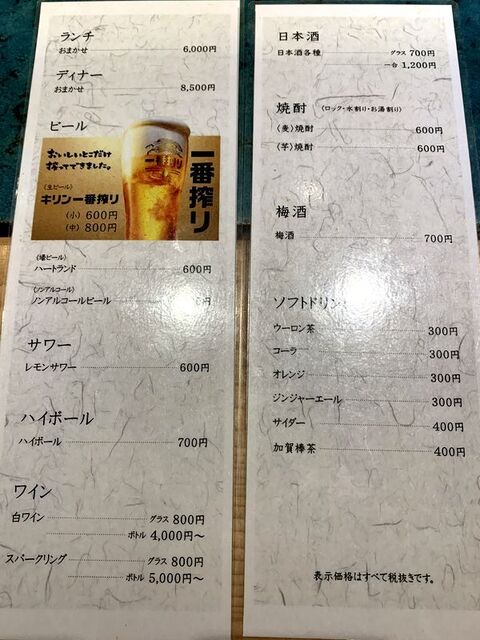 ランチ
おまかせ 6,000円
ディナー
おまかせ 8,500円
ビール
おいしいとこだけ
搾ってできました。
一番搾り
〈生ビール〉
キリン一番搾り
(小) 600円
(中) 800円
一番搾り
〈壜ビール〉
ハートランド 600円
〈ノンアルコール〉
ノンアルコールビール 円
サワー
レモンサワー 600円
ハイボール
ハイボール 700円
ワイン
白ワイン グラス 800円
ボトル 4,000円～
スパークリング グラス 800円
ボトル 5,000円～
日本酒
日本酒各種 グラス 700円
一合 1,200円
焼酎 (ロック・水割り・お湯割り)
〈麦〉焼酎 600円
〈芋〉焼酎 600円
梅酒
梅酒 700円
ソフトドリンク
ウーロン茶 300円
コーラ 300円
オレンジ 300円
ジンジャーエール 300円
サイダー 400円
加賀棒茶 400円
表示価格はすべて税抜きです。